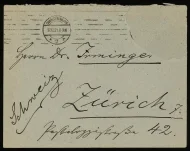 Herrn Dr. Irminger
Schweiz
Zürich 7.
Pestalozzistraße 42.